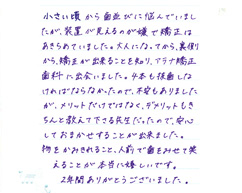 小さい頃から歯並びに悩んでいまし
たが、装置が見えるのが嫌で矯正は
あきらめていました。大人になってから、裏側
から矯正が出来ることを知り、プラザ矯正
歯科に出会いました。4本も抜歯しな
ければならなかったので、不安もありました
が、メリットだけではなく、デメリットもき
ちんと教えて下さる先生だったので、安心
しておまかせすることが出来ました。
物をかみきれること、人前で歯をみせて笑
えることが本当に嬉しいです。
2年間ありがとうございました。